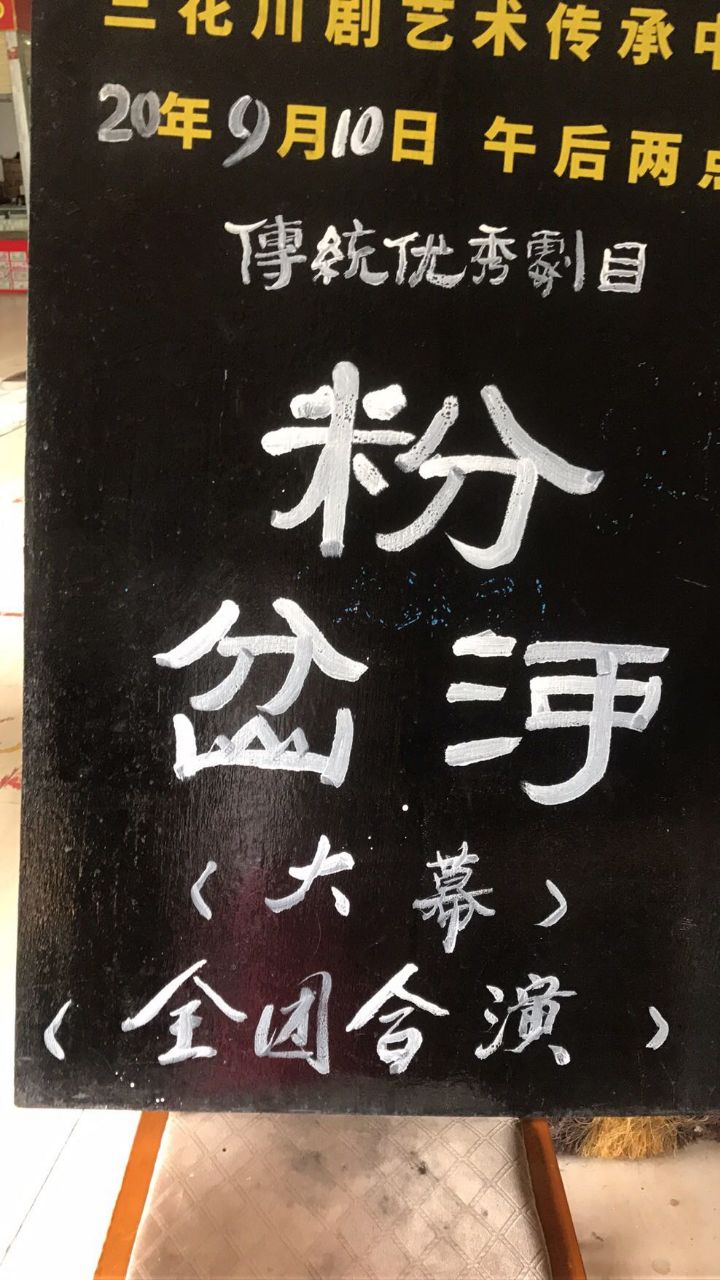 三花川剧艺术传承中
20年9月10日 午后两点
傳統优秀劇目
粉
盆河
（大幕）
（全团合演）